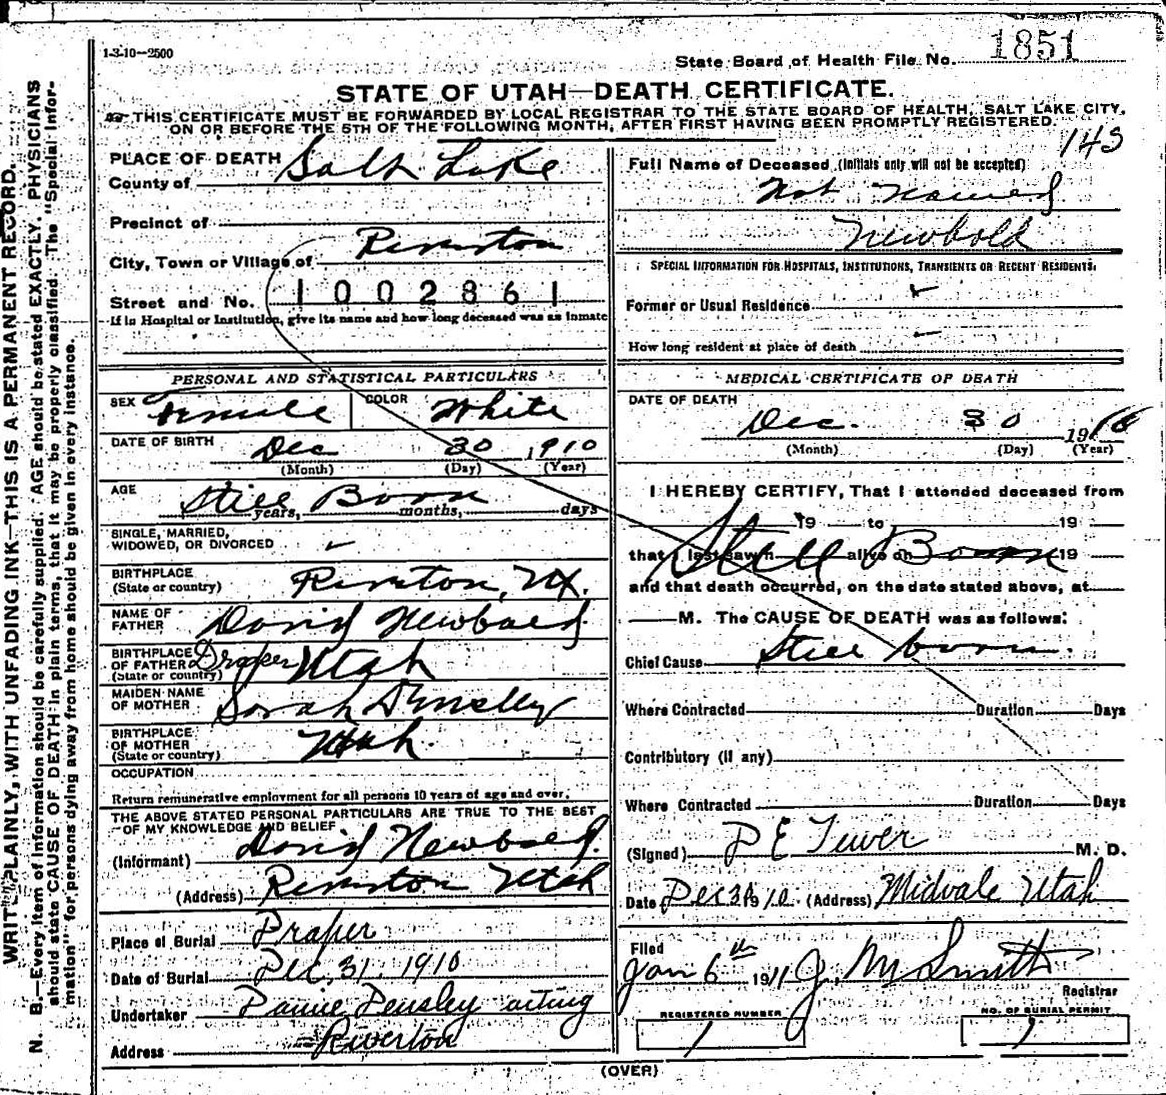 1-3-10—2500
State Board of Health File No. 1851
STATE OF UTAH—DEATH CERTIFICATE.
THIS CERTIFICATE MUST BE FORWARDED BY LOCAL REGISTRAR TO THE STATE BOARD OF HEALTH, SALT LAKE CITY,
ON OR BEFORE THE 5TH OF THE FOLLOWING MONTH, AFTER FIRST HAVING BEEN PROMPTLY REGISTERED.
143
WRITE PLAINLY, WITH UNFADING INK—THIS IS A PERMANENT RECORD.
N. B.—Every item of information should be carefully supplied. AGE should be stated EXACTLY. PHYSICIANS
should state CAUSE OF DEATH in plain terms, that it may be properly classified. The "Special Infor-
mation" for persons dying away from home should be given in every instance.
PLACE OF DEATH
County of Salt Lake
Precinct of
City, Town or Village of Riverton
Street and No. 1002861
If in Hospital or Institution, give its name and how long deceased was as inmate
PERSONAL AND STATISTICAL PARTICULARS
SEX Female COLOR White
DATE OF BIRTH Dec 30 1910
(Month) (Day) (Year)
AGE Still Born
years, months, days
SINGLE, MARRIED,
WIDOWED, OR DIVORCED
BIRTHPLACE
(State or country) Riverton, Ut.
NAME OF
FATHER David Newbold
BIRTHPLACE
OF FATHER Draper Utah
(State or country)
MAIDEN NAME
OF MOTHER Sarah
BIRTHPLACE
OF MOTHER Utah.
(State or country)
OCCUPATION
Return remunerative employment for all persons 10 years of age and over.
THE ABOVE STATED PERSONAL PARTICULARS ARE TRUE TO THE BEST
OF MY KNOWLEDGE AND BELIEF
(Informant) David Newbold.
(Address) Riverton Utah
Place of Burial Draper
Date of Burial Dec. 31. 1910
Undertaker Densley acting
Address Riverton
Full Name of Deceased (Initials only will not be accepted)
Not Named
Newbold
SPECIAL INFORMATION FOR HOSPITALS, INSTITUTIONS, TRANSIENTS OR RECENT RESIDENTS.
Former or Usual Residence
How long resident at place of death
MEDICAL CERTIFICATE OF DEATH
DATE OF DEATH
Dec. 30 1910
(Month) (Day) (Year)
I HEREBY CERTIFY, That I attended deceased from
19 to 19
that I last saw h alive on 19
Still Born
and that death occurred, on the date stated above, at
M. The CAUSE OF DEATH was as follows:
Chief Cause Still born.
Where Contracted Duration Days
Contributory (if any)
Where Contracted Duration Days
(Signed) M. D.
Date Dec 31 1910. (Address) Midvale Utah
Filed
Jan 6th 1911 J. M. Smith
Registrar
REGISTERED NUMBER
1
NO. OF BURIAL PERMIT
1
(OVER)